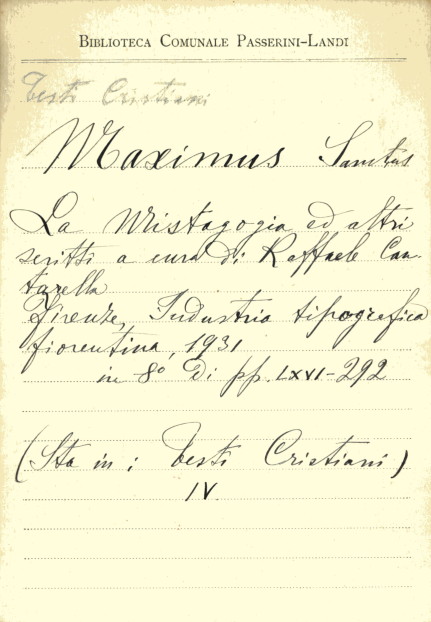 BIBLIOTECA COMUNALE PASSERINI-LANDI
Testi Cristiani
Maximus Sanctus
La Mistagogia ed altri
scritti a cura di Raffaele Can-
tarella
Firenze, Industria tipografica
fiorentina, 1931
in 8° di pp. LXVI-292
(Sta in: Testi Cristiani)
IV.